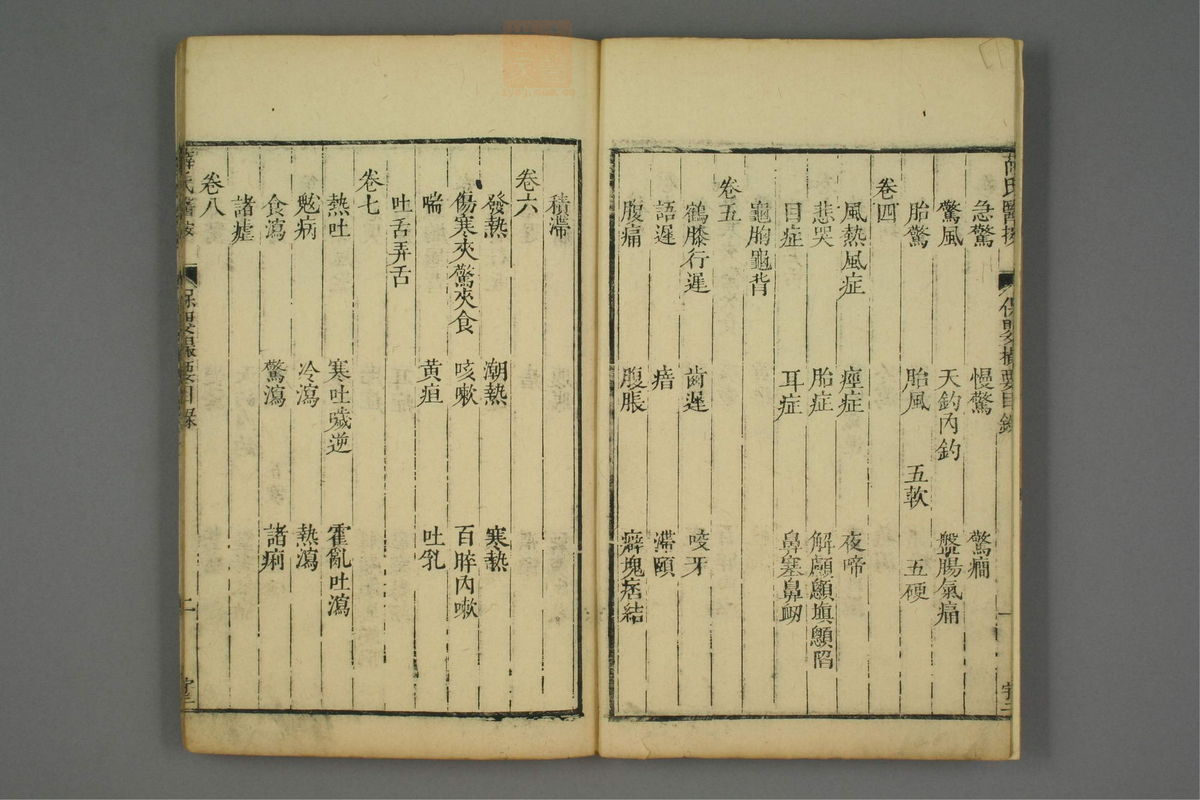 薛氏醫按 保嬰撮要目錄 一
急驚 慢驚 驚癇
驚風 天釣內釣 盤腸氣痛
胎驚 胎風 五軟 五硬
卷四
風熱風症 痙症 夜啼
悲哭 胎症 解顱顖塡顖陷
目症 耳症 鼻塞鼻衂
龜胸龜背
卷五
鶴膝行遲 齒遲 咬牙
語遲 瘖 滯頤
腹痛 腹脹 癖塊痞結
積滯
卷六
發熱 潮熱 寒熱
傷寒夾驚夾食 咳嗽 百晬內嗽
喘 黃疸 吐乳
吐舌弄舌
卷七
熱吐 寒吐噦逆 霍亂吐瀉
鬾病 冷瀉 熱瀉
食瀉 驚瀉 諸痢
諸瘧
卷八
薛氏醫按 保嬰撮要目錄 二